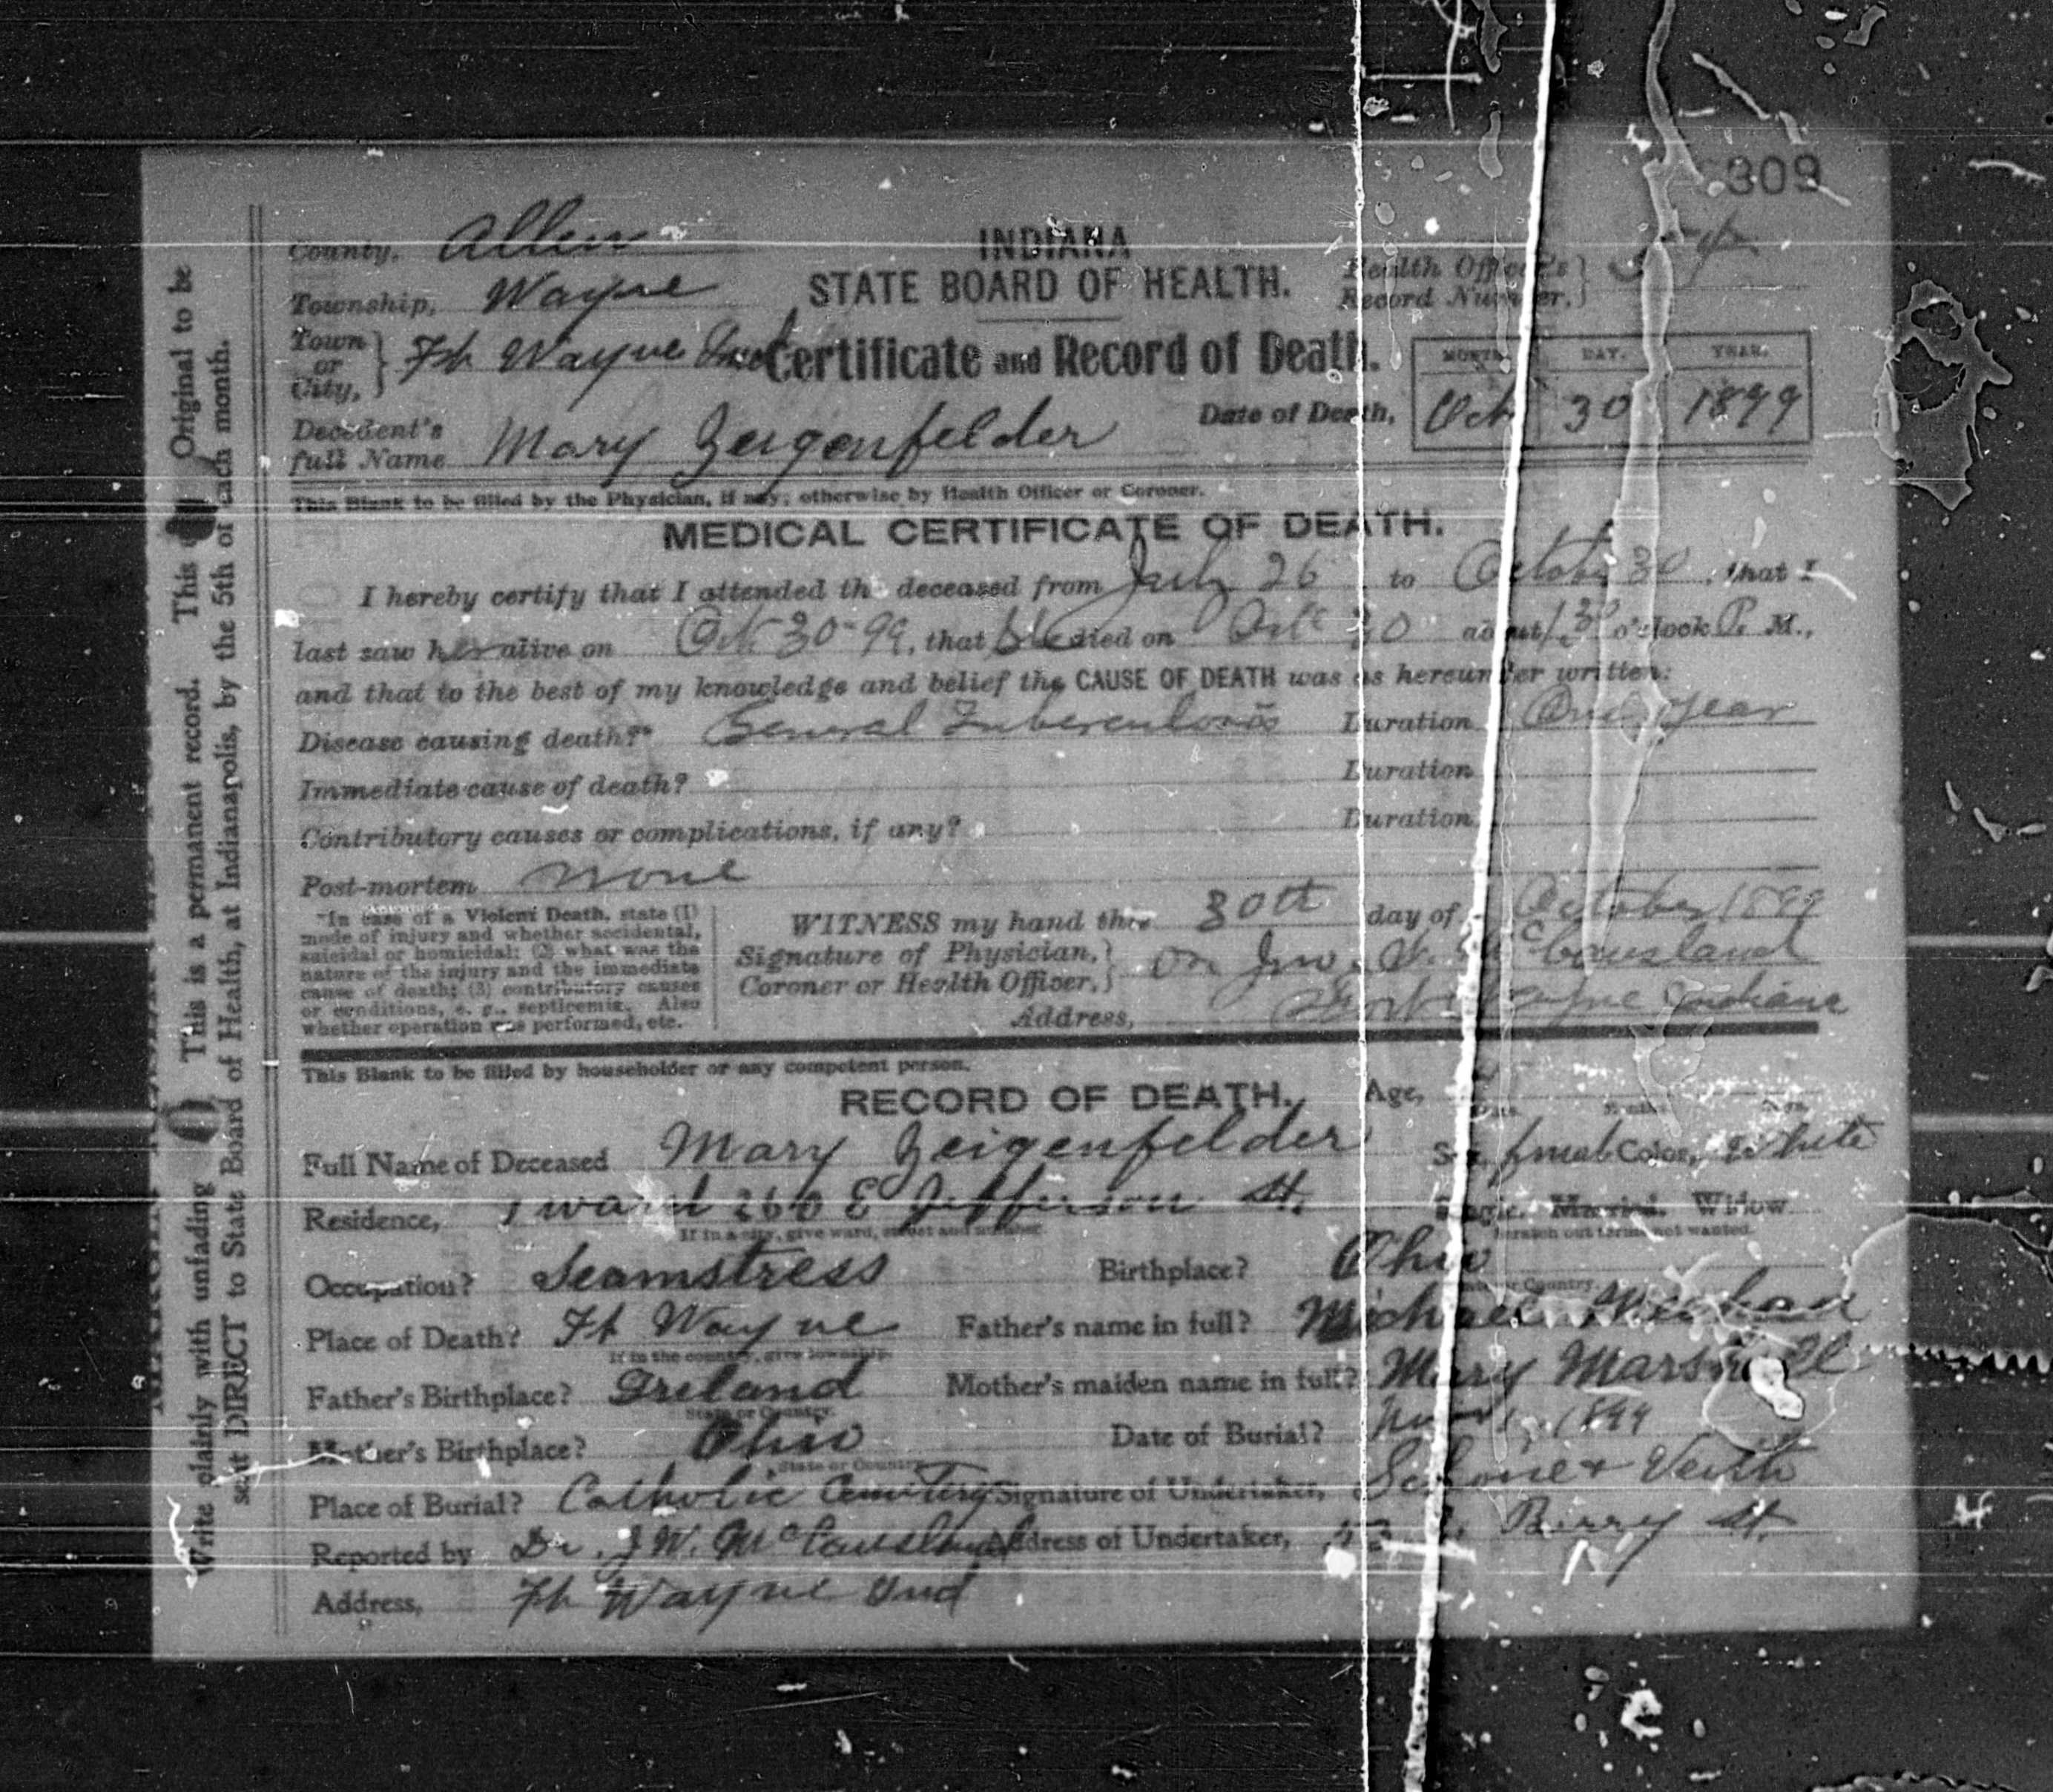 309
County, Allen
INDIANA
Township, Wayne
STATE BOARD OF HEALTH.
Health Officer's Record Number,
Town or City, Ft Wayne Ind
Certificate and Record of Death.
MONTH. DAY. YEAR.
Date of Death, Oct 30 1899
Decedent's full Name Mary Zeigenfelder
This Blank to be filled by the Physician, if any; otherwise by Health Officer or Coroner.
MEDICAL CERTIFICATE OF DEATH.
I hereby certify that I attended the deceased from July 26 to October 30, that I
last saw her alive on Oct 30-99, that she died on Oct 30 about 1.30 o'clock P. M.,
and that to the best of my knowledge and belief the CAUSE OF DEATH was as hereunder written:
Disease causing death?* General Tuberculosis Duration One year
Immediate cause of death? Duration
Contributory causes or complications, if any? Duration
Post-mortem none
*In case of a Violent Death, state (1)
mode of injury and whether accidental,
suicidal or homicidal; (2) what was the
nature of the injury and the immediate
cause of death; (3) contributory causes
or conditions, e. g., septicemia. Also
whether operation was performed, etc.
WITNESS my hand this 30th day of October 1899
Signature of Physician, Coroner or Health Officer, Jno. McCausland
Address, Fort Wayne Indiana
This Blank to be filled by householder or any competent person.
RECORD OF DEATH. Age,
Full Name of Deceased Mary Zeigenfelder Sex, Color, White
Residence, 1 ward 260 E Jefferson St. Single. Married. Widow
If in a city, give ward, street and number. Scratch out terms not wanted.
Occupation? Seamstress Birthplace? Ohio
State or Country.
Place of Death? Ft Wayne Father's name in full? Michael
If in the country, give township.
Father's Birthplace? Ireland Mother's maiden name in full? Mary Marshall
State or Country.
Mother's Birthplace? Ohio Date of Burial? Nov 1, 1899
State or Country.
Place of Burial? Catholic Cemetery Signature of Undertaker, Schone & Veith
Reported by Dr. J.W. McCausland Address of Undertaker, Berry St.
Address, Ft Wayne Ind
Write plainly with unfading This is a permanent record. This Original to be
sent DIRECT to State Board of Health, at Indianapolis, by the 5th of each month.